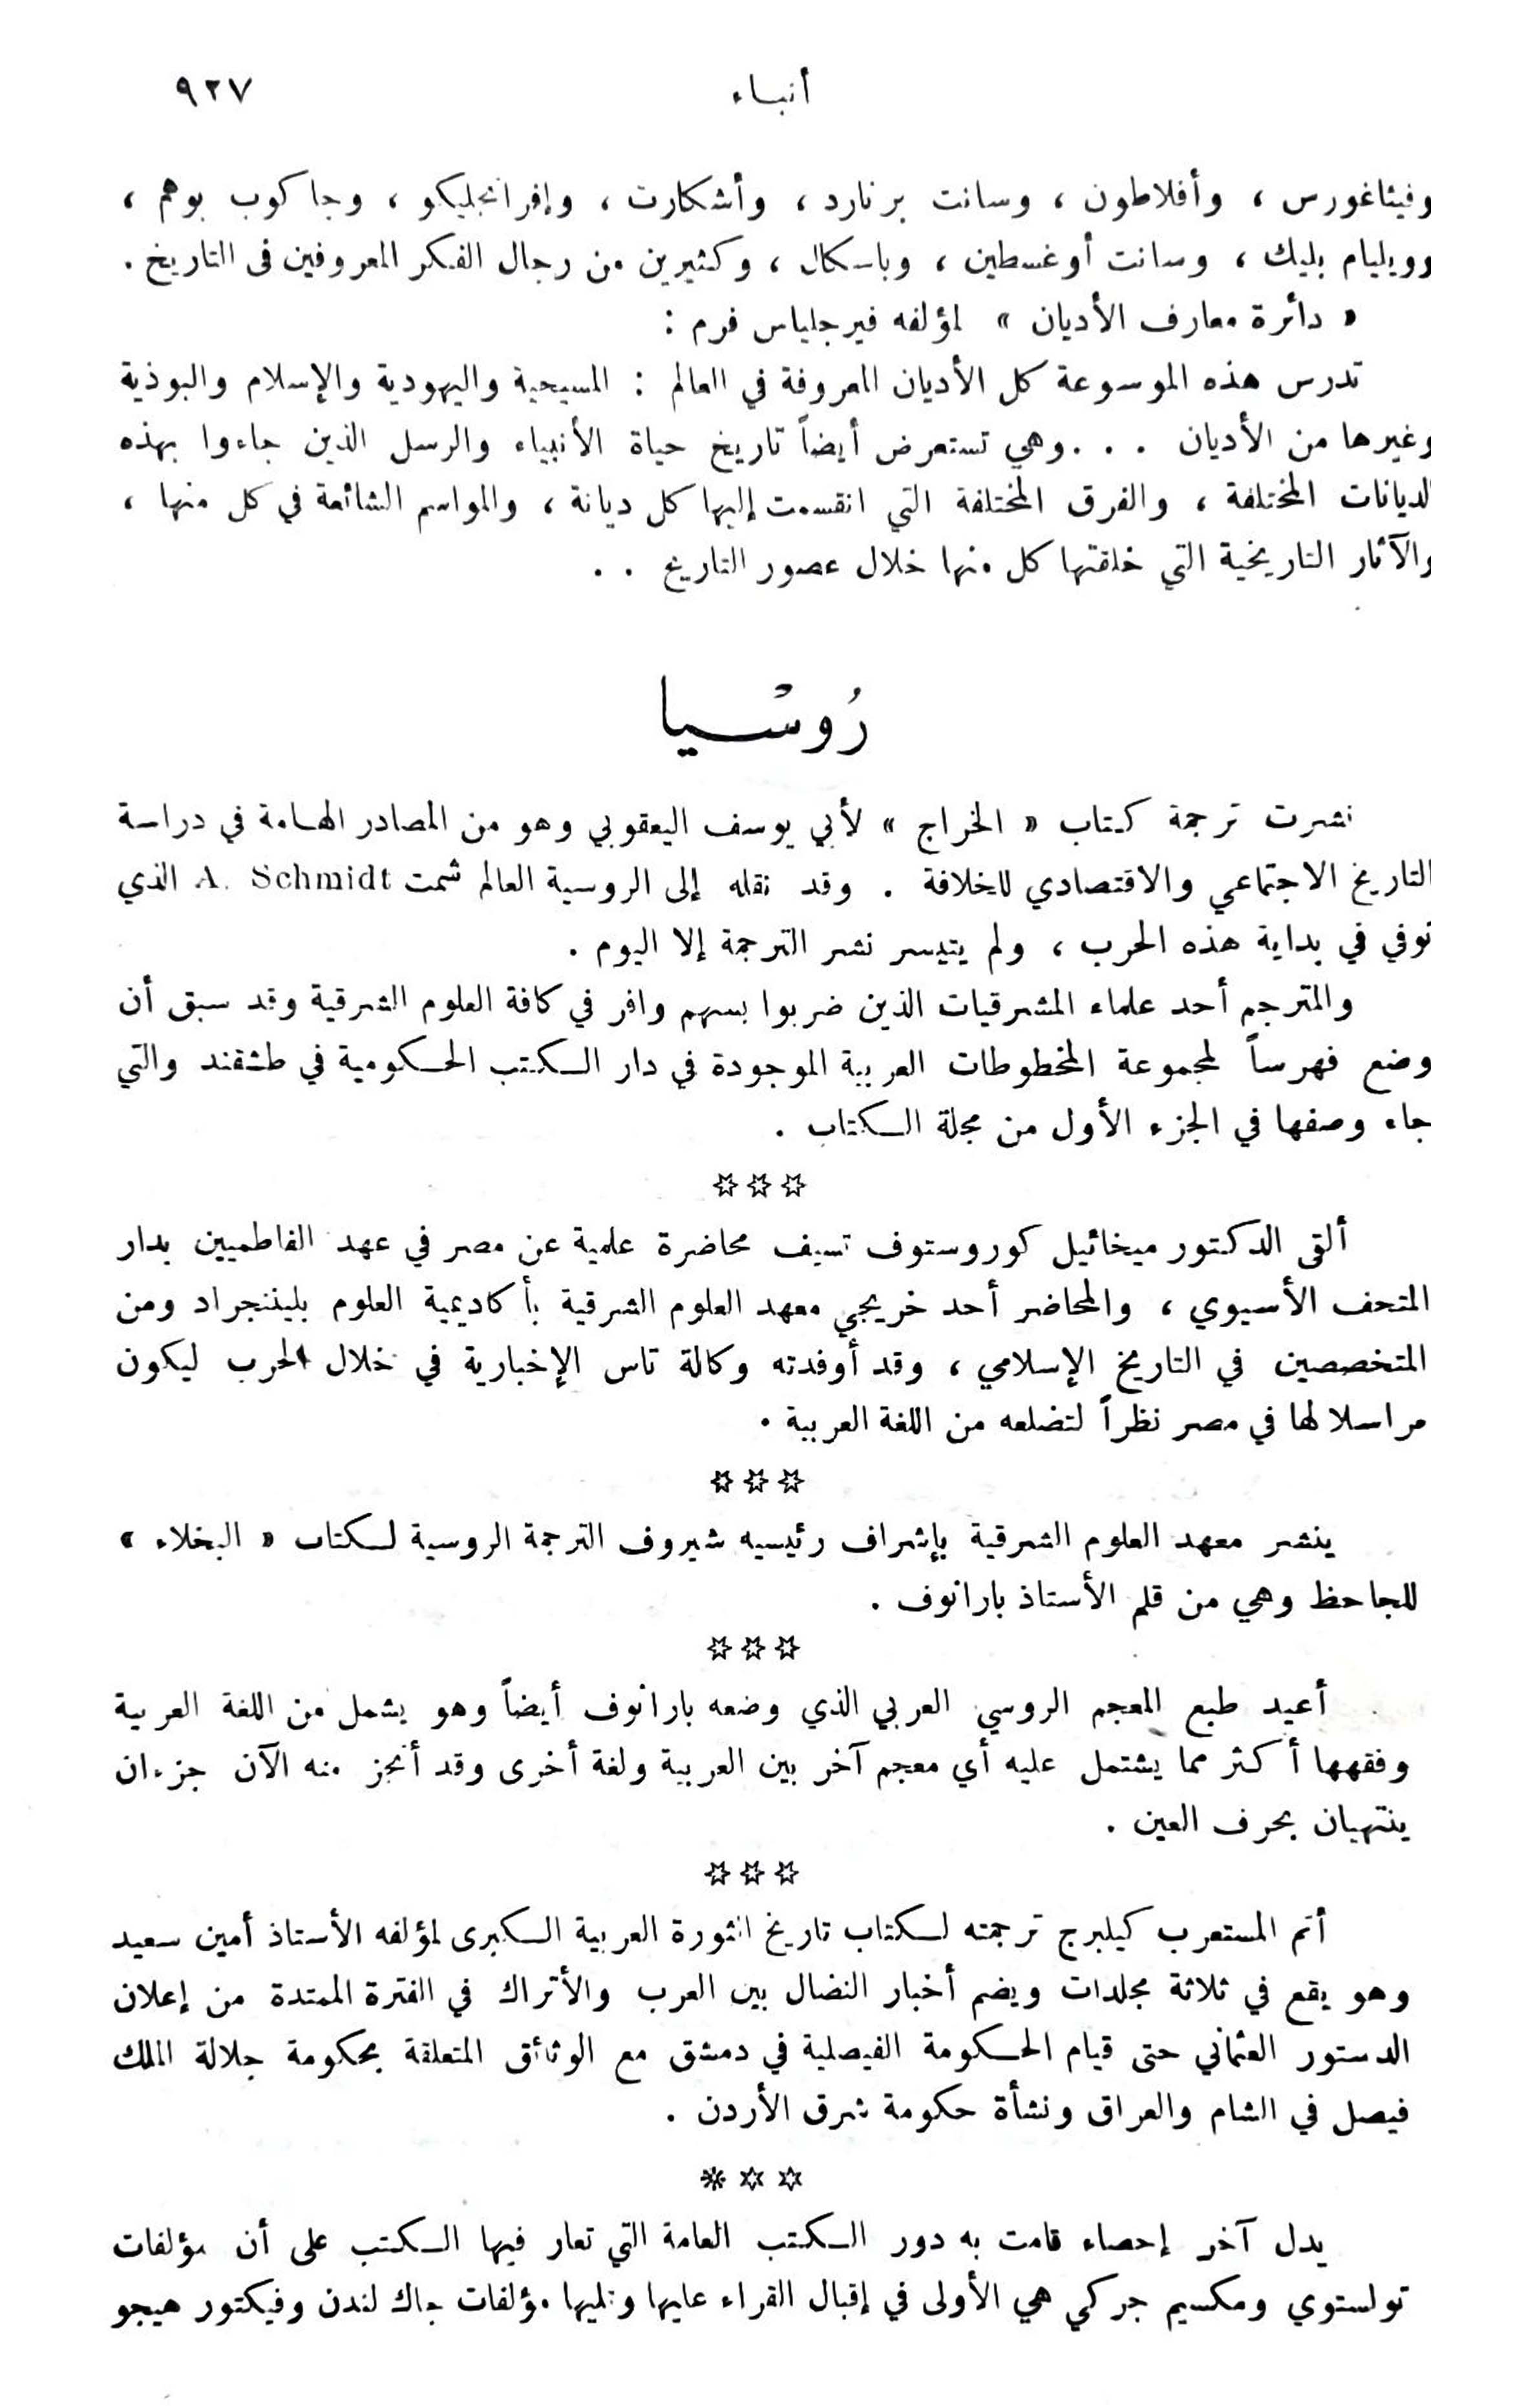 أنباء ٩٢٧
وفيثاغورس ، وأفلاطون ، وسانت برنارد ، وأشكارت ، وإفرانجليكو ، وجاكوب بوهم ،
وويليام بليك ، وسانت أوغسطين ، وباسكال ، وكثيرين من رجال الفكر المعروفين فى التاريخ .
« دائرة معارف الأديان » لمؤلفه فيرجلياس فرم :
تدرس هذه الموسوعة كل الأديان المعروفة في العالم : المسيحية واليهودية والإسلام والبوذية
وغيرها من الأديان . . . وهي تستعرض أيضاً تاريخ حياة الأنبياء والرسل الذين جاءوا بهذه
الديانات المختلفة ، والفرق المختلفة التي انقسمت إليها كل ديانة ، والمواسم الشائعة في كل منها ،
والآثار التاريخية التي خلقتها كل منها خلال عصور التاريخ . .
رُوسْيا
نشرت ترجمة كتاب « الخراج » لأبي يوسف اليعقوبي وهو من المصادر الهامة في دراسة
التاريخ الاجتماعي والاقتصادي للخلافة . وقد نقله إلى الروسية العالم شمت A. Schmidt الذي
توفي في بداية هذه الحرب ، ولم يتيسر نشر الترجمة إلا اليوم .
والمترجم أحد علماء المشرقيات الذين ضربوا بسهم وافر في كافة العلوم الشرقية وقد سبق أن
وضع فهرساً لمجموعة المخطوطات العربية الموجودة في دار الكتب الحكومية في طشقند والتي
جاء وصفها في الجزء الأول من مجلة الكتاب .
☆☆☆
ألقى الدكتور ميخائيل كوروستوف تسيف محاضرة علمية عن مصر في عهد الفاطميين بدار
المتحف الأسيوي ، والمحاضر أحد خريجي معهد العلوم الشرقية بأكاديمية العلوم بليننجراد ومن
المتخصصين في التاريخ الإسلامي ، وقد أوفدته وكالة تاس الإخبارية في خلال الحرب ليكون
مراسلا لها في مصر نظراً لتضلعه من اللغة العربية .
☆☆☆
ينشر معهد العلوم الشرقية بإشراف رئيسيه شيروف الترجمة الروسية لكتاب « البخلاء »
للجاحظ وهي من قلم الأستاذ بارانوف .
☆☆☆
أعيد طبع المعجم الروسي العربي الذي وضعه بارانوف أيضاً وهو يشمل من اللغة العربية
وفقهها أكثر مما يشتمل عليه أي معجم آخر بين العربية ولغة أخرى وقد أنجز منه الآن جزءان
ينتهيان بحرف العين .
☆☆☆
أتم المستعرب كيلبرج ترجمته لكتاب تاريخ الثورة العربية الكبرى لمؤلفه الأستاذ أمين سعيد
وهو يقع في ثلاثة مجلدات ويضم أخبار النضال بين العرب والأتراك في الفترة الممتدة من إعلان
الدستور العثماني حتى قيام الحكومة الفيصلية في دمشق مع الوثائق المتعلقة بحكومة جلالة الملك
فيصل في الشام والعراق ونشأة حكومة شرق الأردن .
☆☆☆
يدل آخر إحصاء قامت به دور الكتب العامة التي تعار فيها الكتب على أن مؤلفات
تولستوي ومكسيم جركي هي الأولى في إقبال القراء عليها وتليها مؤلفات جاك لندن وفيكتور هيجو